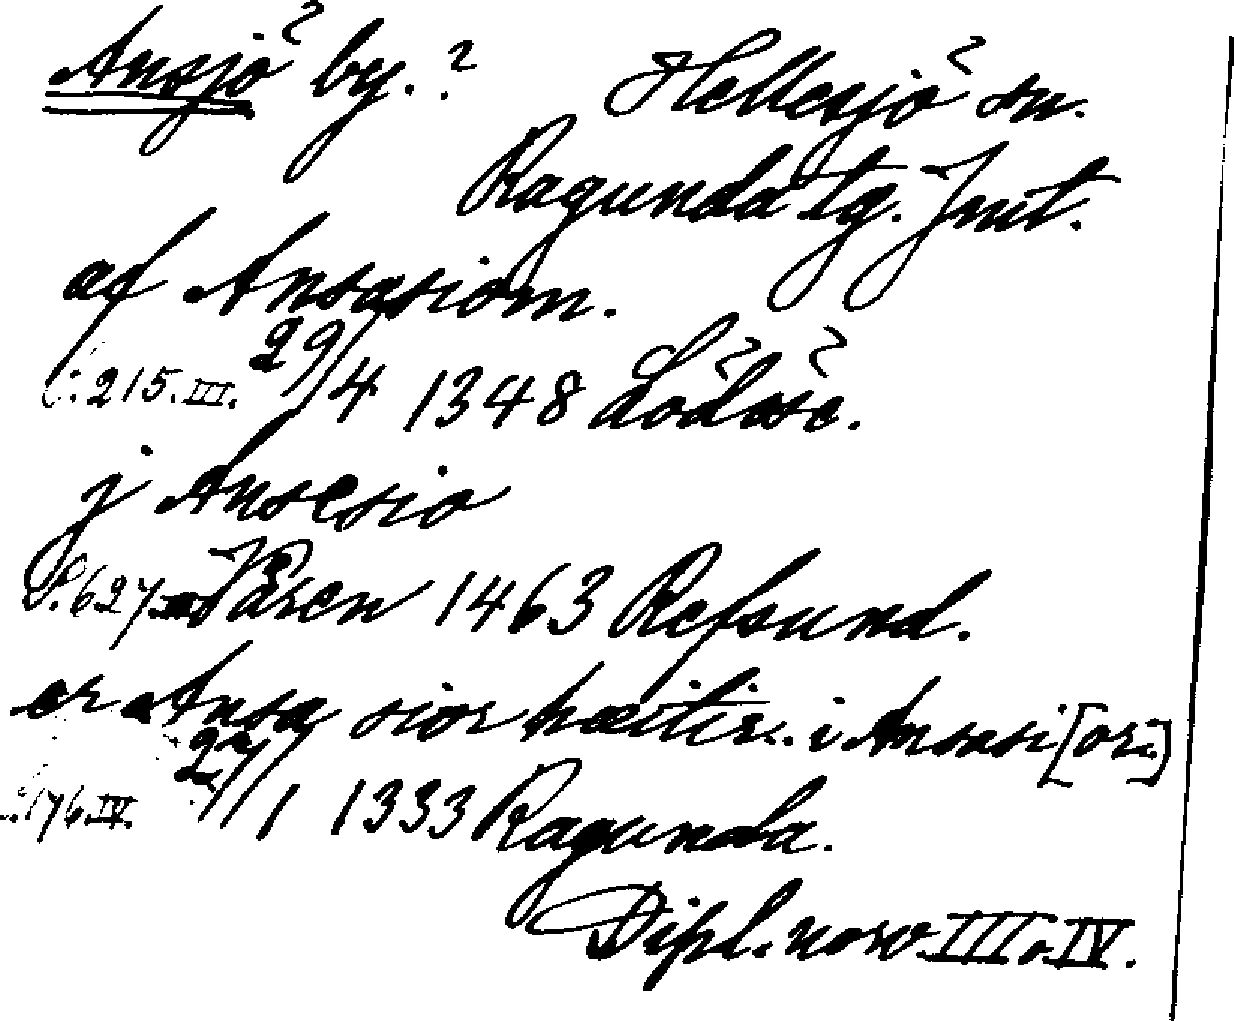 Ansjö by.? Hellesjö sn.
Ragunda tg. Jmt.
af Ansasiom.
S. 215. III. 29/4 1348 Lödöse.
j Ansesio
S. 627. Våren 1463 Refsund.
er Ansa sior hæitir. i Ansasi[ori]
S. 176. IV. 27/1 1333 Ragunda.
Dipl. norv. III o. IV.